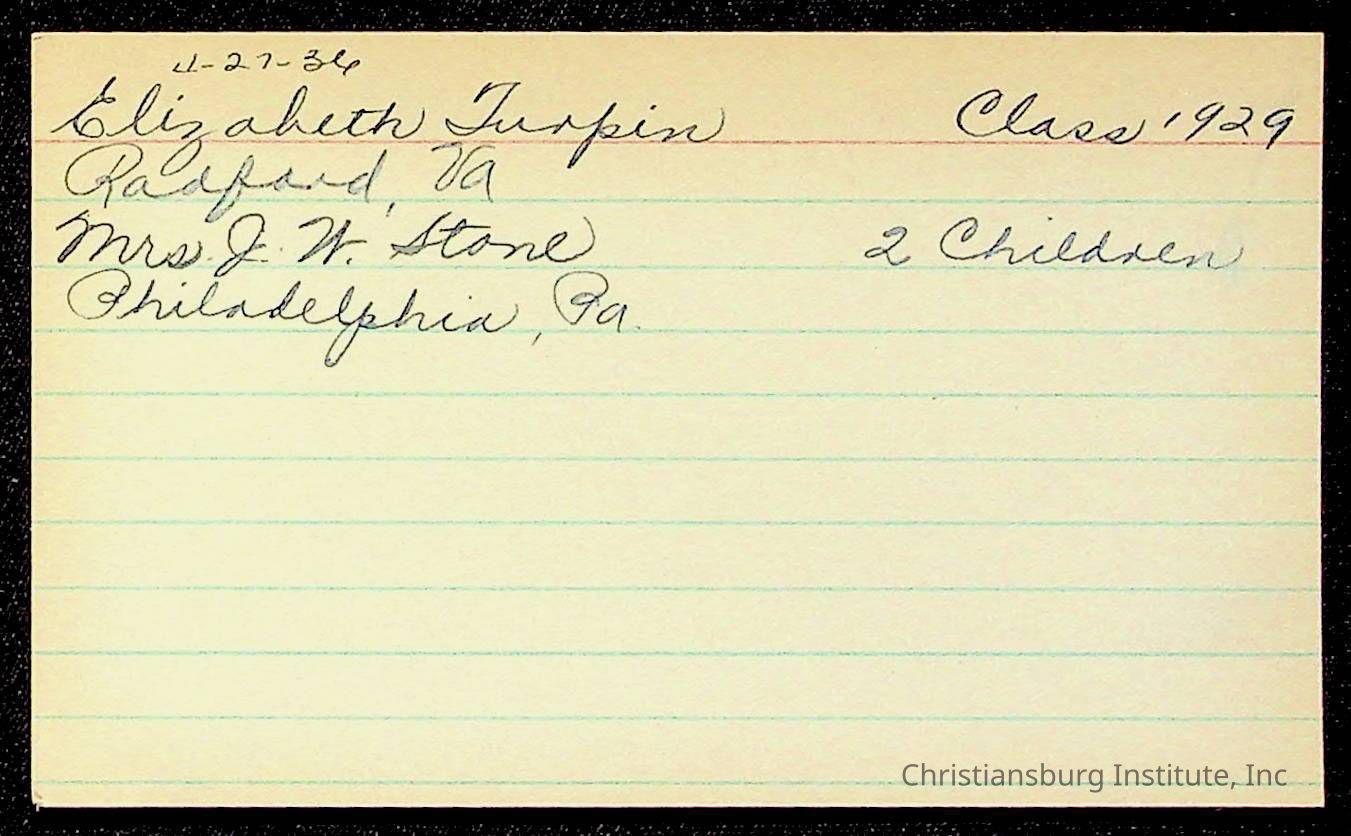 4-27-36
Elizabeth Turpin Class 1929
Radford, Va
Mrs. J. W. Stone 2 Children
Philadelphia, Pa.
Christiansburg Institute, Inc